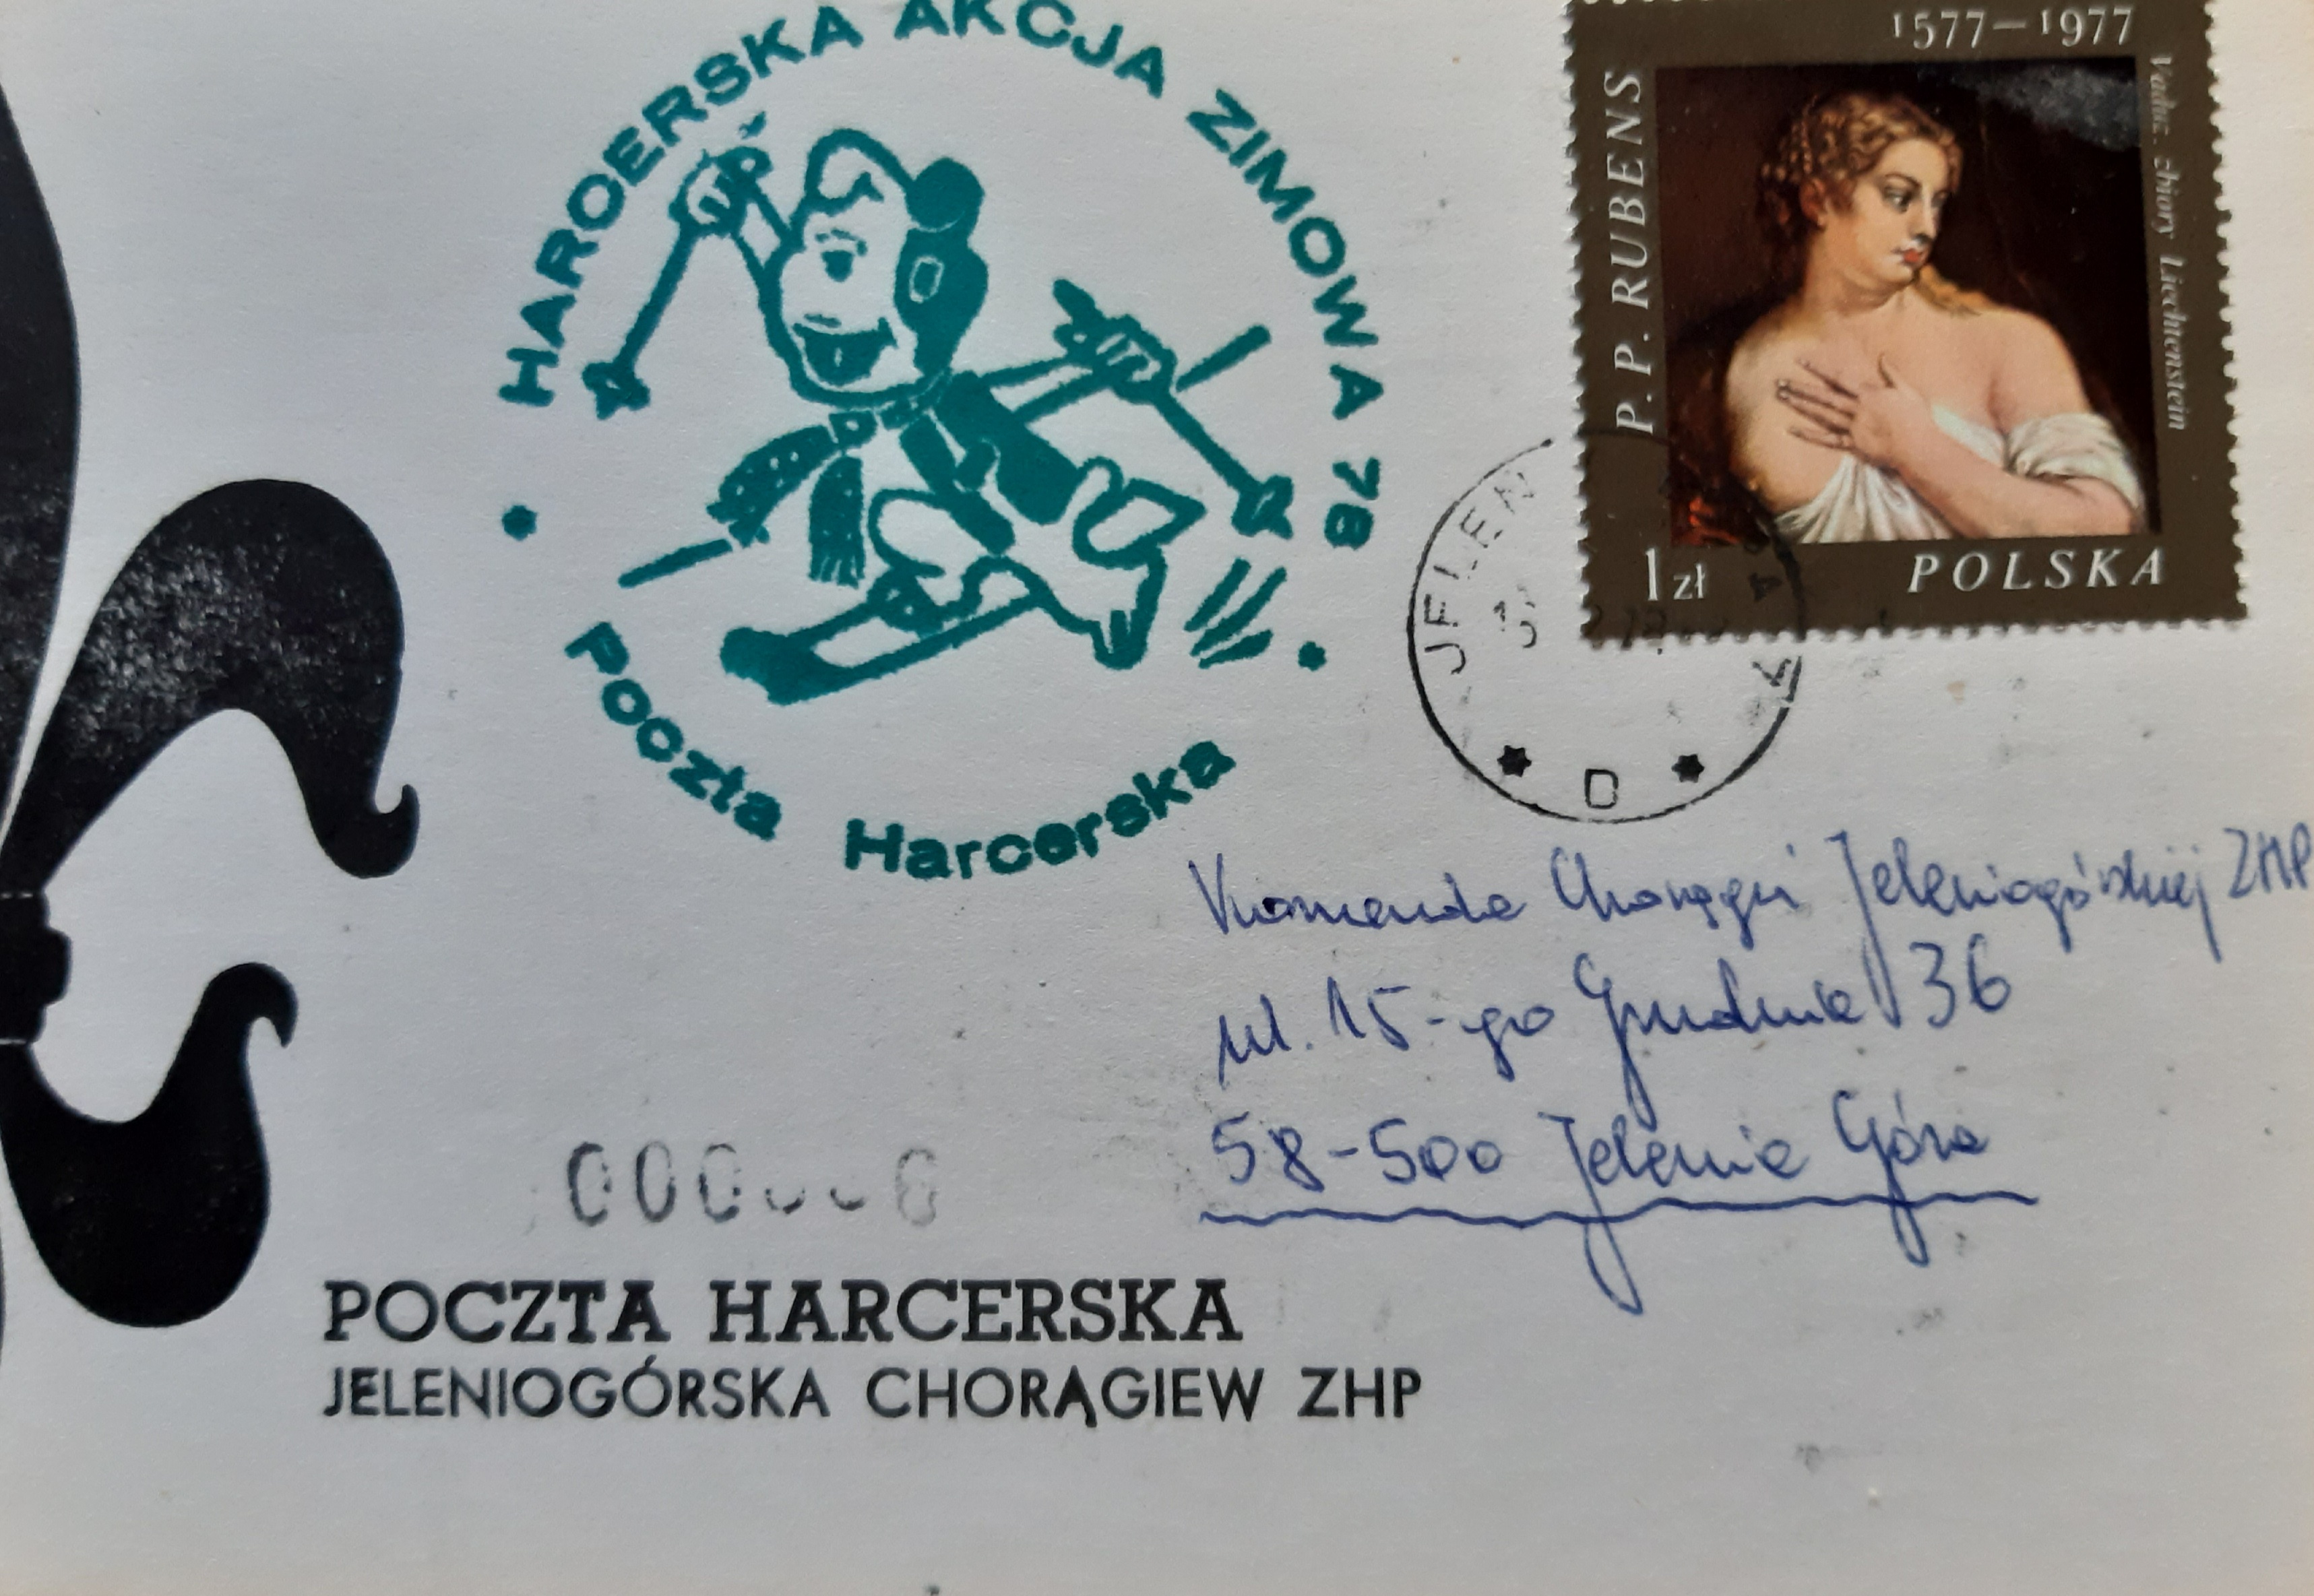 HARCERSKA AKCJA ZIMOWA 78
Poczta Harcerska
1577–1977
P. P. RUBENS
Vaduz zbiory Liechtenstein
1 zł POLSKA
JELEN
D
Komenda Chorągwi Jeleniogórskiej ZHP
ul. 15-go Grudnia 36
58-500 Jelenia Góra
POCZTA HARCERSKA
JELENIOGÓRSKA CHORĄGIEW ZHP